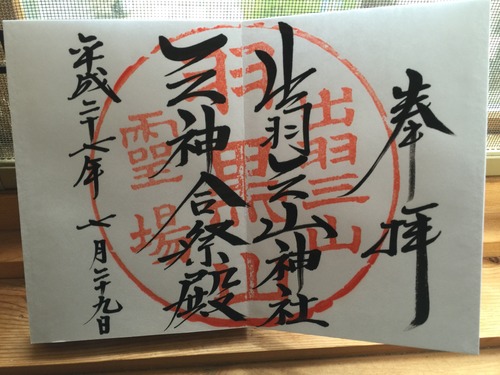 奉拝
出羽三山神社
三神合祭殿
平成二十八年 七月二十九日
出羽三山
羽黒山
靈場